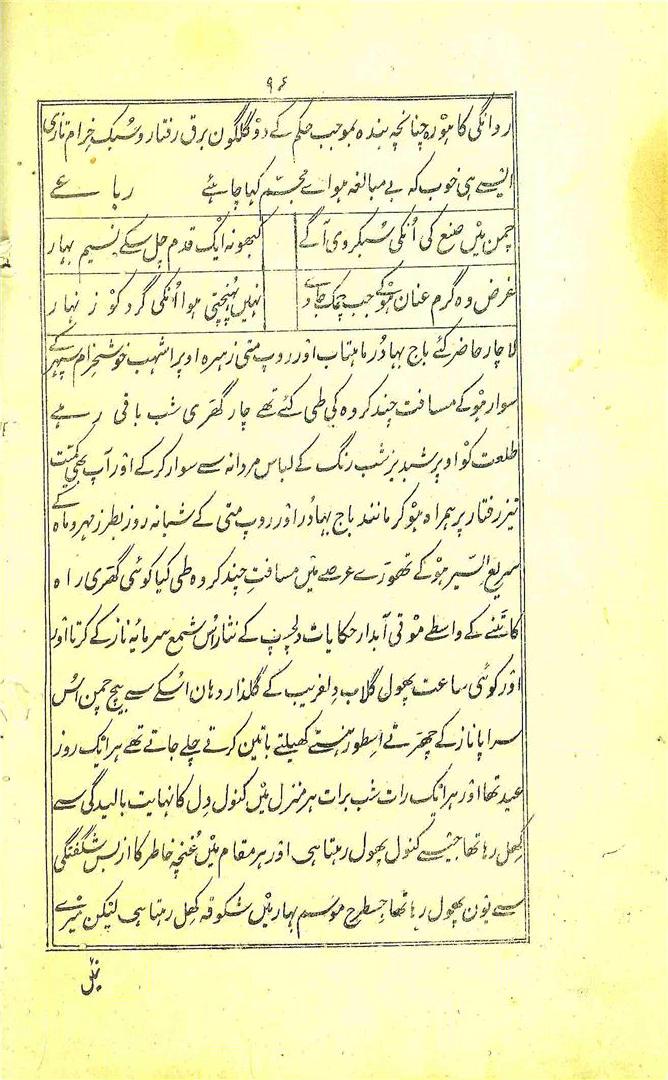 ۹۶
روانگی کا ہو رہ چنانچہ بندہ بموجب حکم کے دو گلگون برق رفتار و سبک خرام تازی
ایسے ہی خوب کہ بے مبالغہ ہواے مجسّم کہا چاہئے رباعے
چمن میں صنع کی اُنکی سُبکروی آگے کبھو نہ ایک قدم چل سکے نسیم بہار
غرض وہ گرم عنان ہوکے جب چمک جاوے نہیں پُہنچتی ہوا اُنکی گرد کو زنہار
لاچار حاضر کئے باج بہادُر ماہتاب اور روپ متی زہرہ اوپر اشہب خوشخرام سپہر کے
سوار ہوکے مسافت چند کروہ کی طی کئے تھے چار گھری شب باقی رہے
طلعت کو اوپر شبدیز شب رنگ کے لباس مردانہ سے سوار کرکے اور آپ بھی کمیت
تیز رفتار پر ہمراہ ہوکر مانند باج بہادُر اور روپ متی کے شبانہ روز بطرز مہر و ماہ کے
سریع السّیر ہوکے تھورے عرصے میں مسافتِ چند کروہ طی کیا کوئی گھری راہ
کاٹنے کے واسطے موتی آبدار حکایات دلچسپ کے نثار اُس شمع سرمایہ ناز کے کرتا اور
اور کوئی ساعت پھول گلاب دلفریب کے گلذار دہان اُسکے سے بیچ چمن اُس
سراپا ناز کے چھرتے اسطور ہنستے کھیلتے باتین کرتے چلے جاتے تھے ہر ایک روز
عید تھا اور ہر ایک رات شب برات ہر منزل میں کنول دِل کا نہایت بالیدگی سے
کھِل رہا تھا جیسے کنول پھول رہتا ہی اور ہر مقام میں غُنچہ خاطر کا از بس شگفتگی
سے یون پھول رہا تھا جسطرح موسم بہار میں شگوفہ کھِل رہتا ہی لیکن میرے